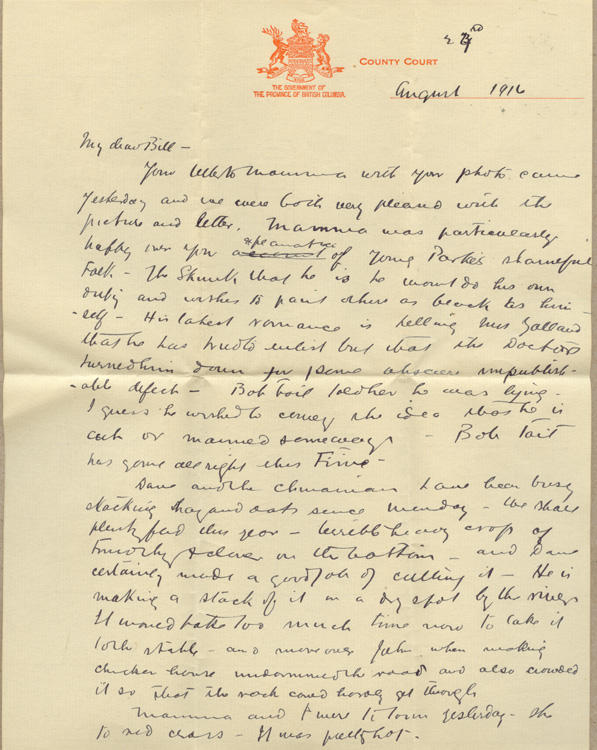 23rd
COUNTY COURT
THE GOVERNMENT OF
THE PROVINCE OF BRITISH COLUMBIA.
August 1916
My dear Bill –
Your letter to Mamma with your photo came
yesterday and we were both very pleased with the
picture and letter. Mamma was particularly
explanation
happy over your account of Young Parker's shameful
talk – The Skunk that he is he wont do his own
duty and wishes to paint others as black as him
-self – His latest romance is telling Mrs
that he has tried to enlist but that the Doctors
turned him down for some obscure unpublish-
-able defect – Bob Tait told her he was lying –
I guess he wished to convey the idea that he is
or maimed someways – Bob Tait
has gone all right this Time –
Dave and the Chinaman have been busy
stacking hay and oats since Monday – We shall
plenty feed this year – terribly heavy crop of
timothy & clover on the bottom – and Dave
certainly made a good job of cutting it – He is
making a stack of it on a dry spot by the river
It would take too much time now to take it
to the stable – and moreover John when making
chicken house undermined the road and also crowded
it so that the rack could hardly get through
Mamma and I were to town yesterday – she
to red cross – It was pretty hot.